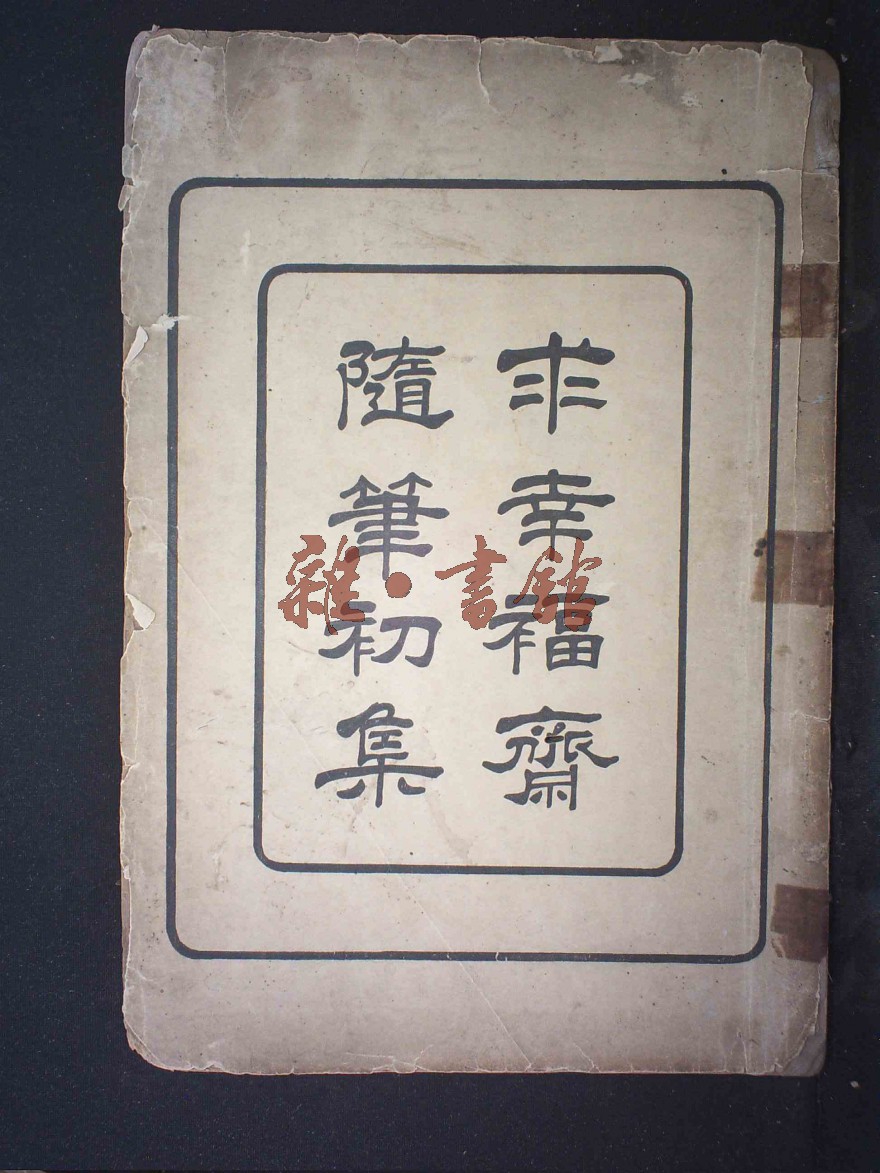 求幸福齋
隨筆初集
雜·書館